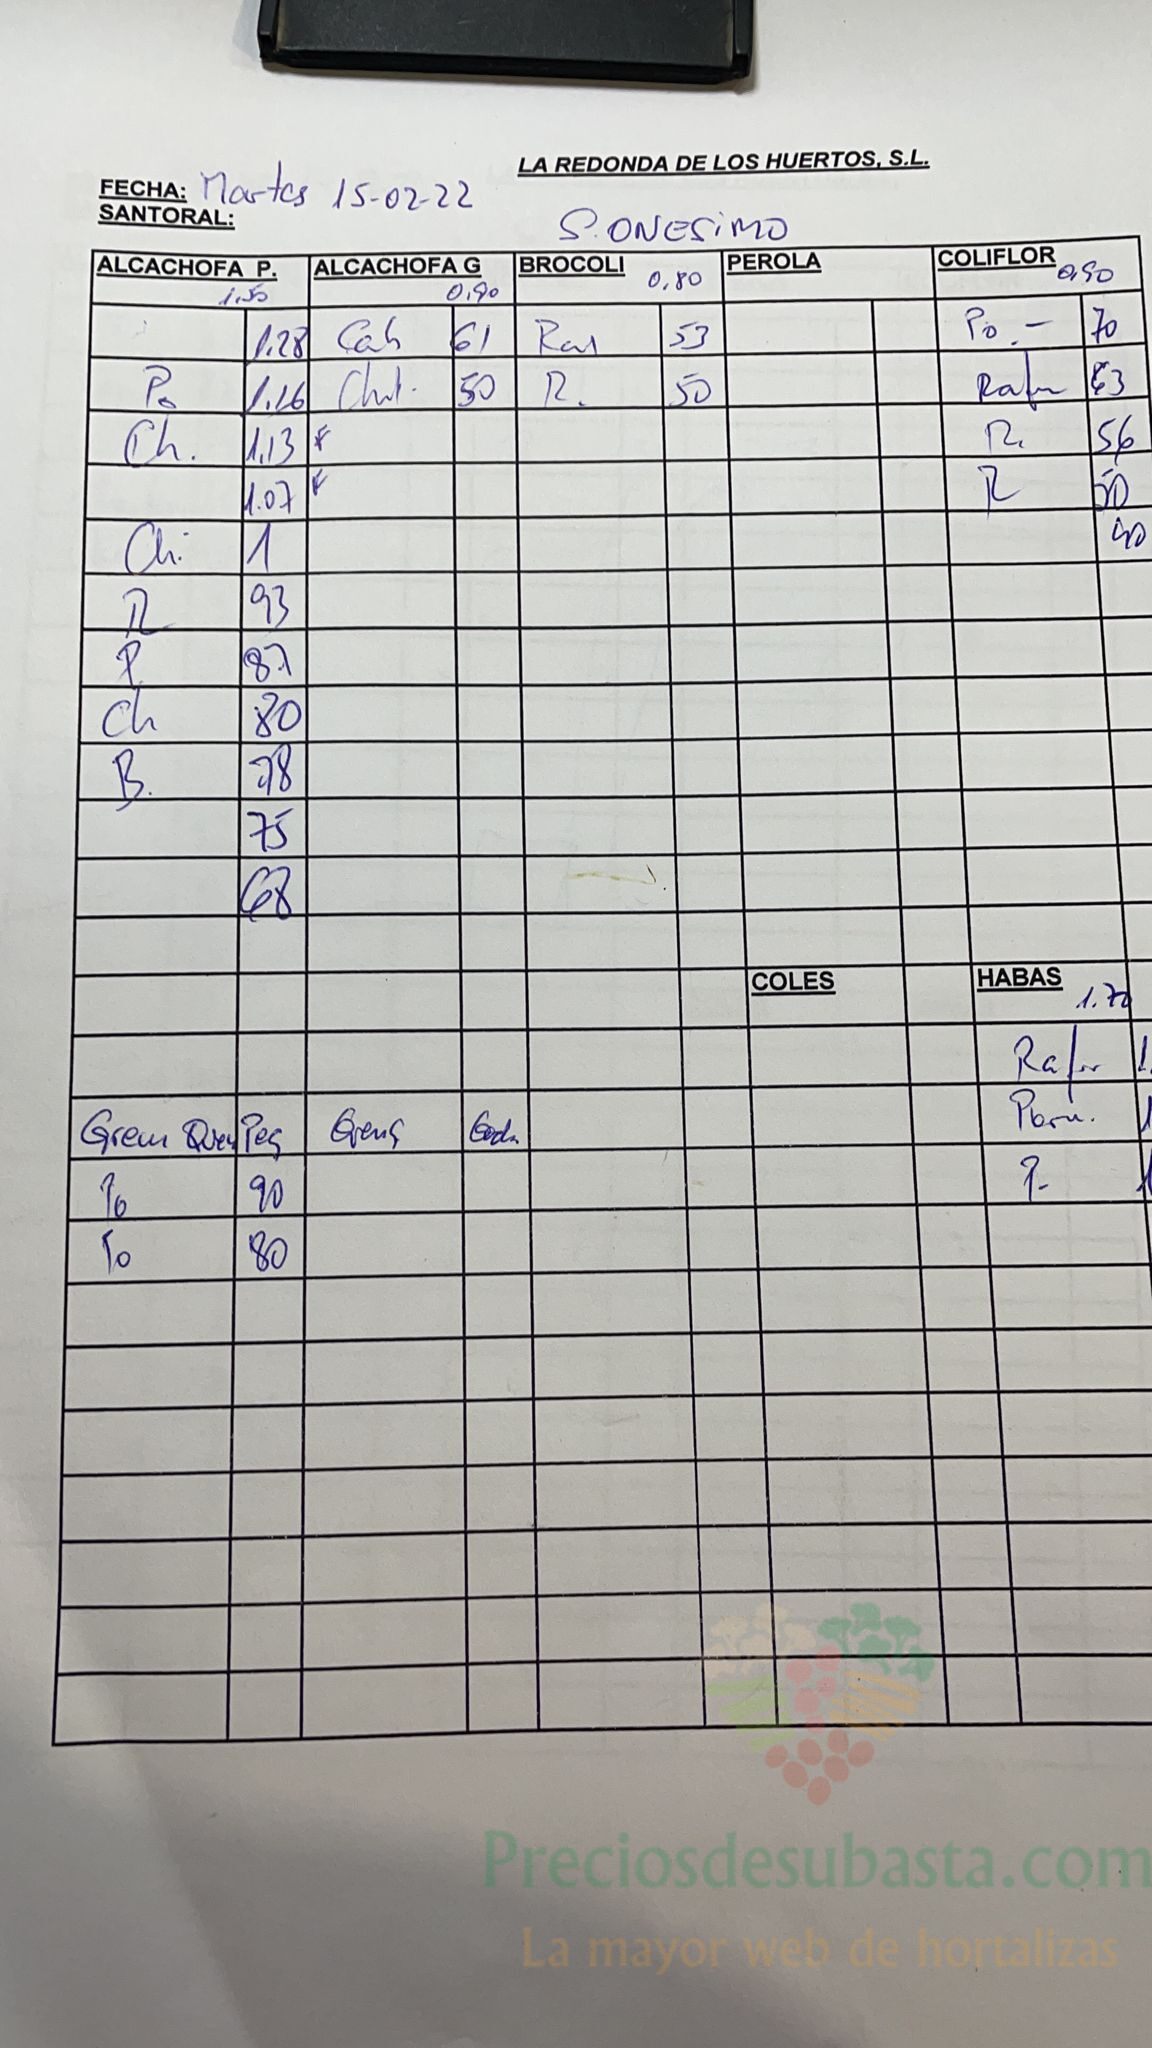 LA REDONDA DE LOS HUERTOS, S.L.
FECHA: Martes 15-02-22
SANTORAL: S. ONESIMO
ALCACHOFA P. ALCACHOFA G BROCOLI PEROLA COLIFLOR
1,50 0,90 0,80 0,90
1.28 Cah 61 Raf 53 Po. - 70
Po 1.16 Chat. 50 R. 50 Rafa 63
Ch. 1.13 * R. 56
1.07 * R 50
Ch. 1 40
R 93
P. 87
Ch 80
B. 78
75
68
COLES HABAS
1.70
Rafa 1.
Pom. 1
Peq P- 1
Po 90
Po 80
Preciosdesubasta.com
La mayor web de hortalizas